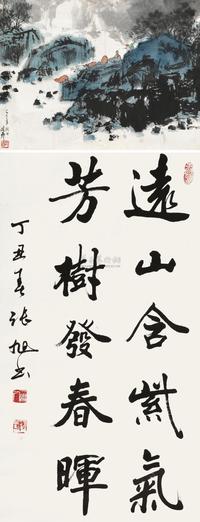 遠山含紫氣
芳樹發春暉
丁丑春張旭书